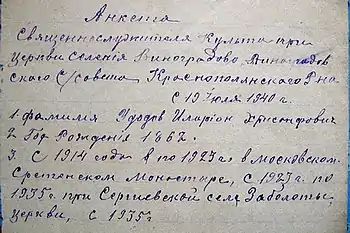 Анкета
Священнослужителя Культа при
Церкви Селения Виноградово, Виноградов
ского С/совета Краснополянского Р-на
С 19 Июля 1940 г.
1. Фамилия Удодов Иларион Христофорович
2. Год Рождения 1862.
3. С 1914 года и по 1923 г. в Московском
Сретенском Монастыре, с 1923 г. по
1935 г. при Сергиевской села Заболотье
Церкви, с 1935 г